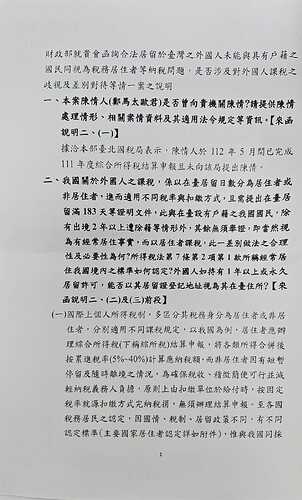 財政部就貴會函詢合法居留於臺灣之外國人未能與具有戶籍之
國民同視為稅務居住者等納稅問題，是否涉及對外國人課稅之
歧視及差別對待等情一案之說明
一、本案陳情人(鄭馬太歐君)是否曾向貴機關陳情?請提供陳情
處理情形、相關案情資料及其適用法令規定等資訊。【來函
說明二、(一)】
據洽本部臺北國稅局表示，陳情人於 112 年 5 月間已完成
111 年度綜合所得稅結算申報且未向該局提出陳情。
二、我國關於外國人之課稅，係以在臺居留日數分為居住者或
非居住者，進而適用不同稅率與扣繳方式，且需提出在臺居
留滿 183 天等證明文件，此與在臺設有戶籍之我國國民，除
有出境 2 年以上遭除籍等情形外，其餘無須舉證，即當然視
為有經常居住事實，而以居住者課稅，此一差別做法之合理
性及必要性為何?所得稅法第 7 條第 2 項第 1 款所稱經常居
住我國境內之標準如何認定?外國人如持有 1 年以上或永久
居留許可，能否以其居留證登記地址視為其在臺住所?【來
函說明二、(二)及(三)前段】
(一)國際上個人所得稅制，多區分其稅務身分為居住者或非居
住者，分別適用不同課稅規定，以我國為例，居住者應辦
理綜合所得稅(下稱綜所稅)結算申報，將各類所得合併後
按累進稅率(5%-40%)計算應納稅額，而非居住者因有短暫
停留及隨時離境之情況，為確保稅收、稽徵簡便可行並減
輕納稅義務人負擔，原則上由扣繳單位於給付時，按固定
稅率就源扣繳方式完納稅捐，無須辦理結算申報。至各國
稅務居民之認定，因國情、稅制、居留政策不同，有不同
認定標準(主要國家居住者認定詳如附件)，惟與我國同採
1